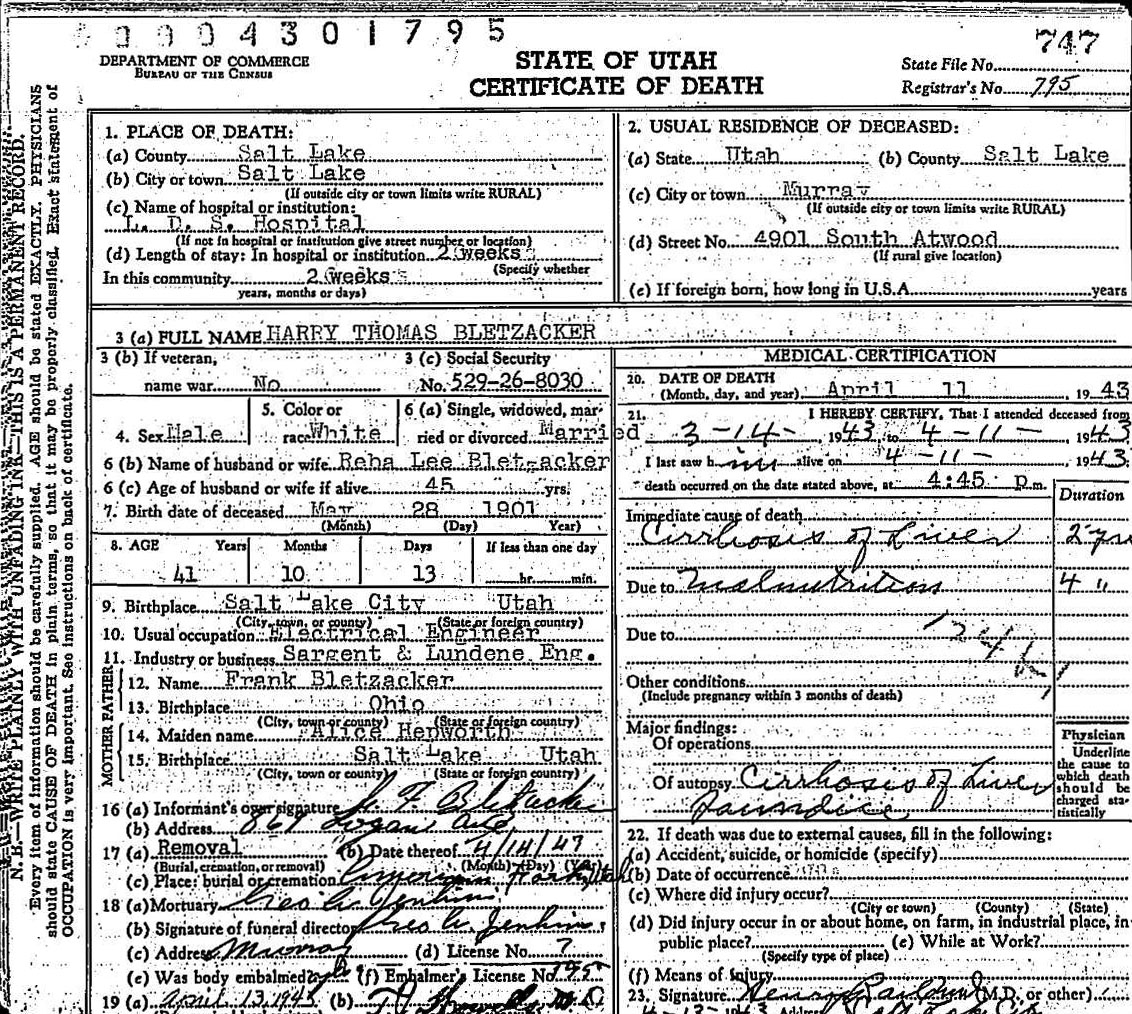 0004301795
747
DEPARTMENT OF COMMERCE
BUREAU OF THE CENSUS
STATE OF UTAH
CERTIFICATE OF DEATH
State File No.
Registrar's No. 795
N.B.—WRITE PLAINLY WITH UNFADING INK—THIS IS A PERMANENT RECORD.
Every item of information should be carefully supplied. AGE should be stated EXACTLY. PHYSICIANS
should state CAUSE OF DEATH in plain terms, so that it may be properly classified. Exact statement of
OCCUPATION is very important. See instructions on back of certificate.
1. PLACE OF DEATH:
(a) County Salt Lake
(b) City or town Salt Lake
(If outside city or town limits write RURAL)
(c) Name of hospital or institution:
L. D. S. Hospital
(If not in hospital or institution give street number or location)
(d) Length of stay: In hospital or institution 2 weeks
(Specify whether
In this community 2 weeks
years, months or days)
2. USUAL RESIDENCE OF DECEASED:
(a) State Utah (b) County Salt Lake
(c) City or town Murray
(If outside city or town limits write RURAL)
(d) Street No. 4901 South Atwood
(If rural give location)
(e) If foreign born, how long in U.S.A. years
3 (a) FULL NAME HARRY THOMAS BLETZACKER
3 (b) If veteran,
name war No
3 (c) Social Security
No. 529-26-8030
4. Sex Male
5. Color or
race White
6 (a) Single, widowed, mar-
ried or divorced Married
6 (b) Name of husband or wife Reba Lee Bletzacker
6 (c) Age of husband or wife if alive 45 yrs.
7. Birth date of deceased May 28 1901
(Month) (Day) Year)
8. AGE Years Months Days If less than one day
41 10 13 hr. min.
9. Birthplace Salt Lake City Utah
(City, town, or county) (State or foreign country)
10. Usual occupation Electrical Engineer
11. Industry or business Sargent & Lundene Eng.
FATHER
12. Name Frank Bletzacker
13. Birthplace Ohio
(City, town or county) (State or foreign country)
MOTHER
14. Maiden name Alice Hepworth
15. Birthplace Salt Lake Utah
(City, town or county) (State or foreign country)
16 (a) Informant's own signature Bletzacker
(b) Address 867 Logan Ave
17 (a) Removal (b) Date thereof 4/14/47
(Burial, cremation, or removal) (Month) (Day) (Year)
(c) Place: burial or cremation American Fork Utah
18 (a) Mortuary Geo W Jenkins
(b) Signature of funeral director Geo W Jenkins
(c) Address Murray (d) License No. 7
(e) Was body embalmed? yes (f) Embalmer's License No. 195
19 (a) April 13 1943 (b)
MEDICAL CERTIFICATION
20. DATE OF DEATH
(Month, day, and year) April 11 1943
21. I HEREBY CERTIFY, That I attended deceased from
3-14- 1943 to 4-11- 1943
I last saw him alive on 4-11- 1943
death occurred on the date stated above, at 4:45 p.m.
Duration
Immediate cause of death
Cirrhosis of Liver 2 yrs
Due to Malnutrition 4 "
Due to
124
Other conditions
(Include pregnancy within 3 months of death)
Major findings:
Of operations
Of autopsy Cirrhosis of Liver
Jaundice
Physician
Underline
the cause to
which death
should be
charged sta-
tistically
22. If death was due to external causes, fill in the following:
(a) Accident, suicide, or homicide (specify)
(b) Date of occurrence
(c) Where did injury occur?
(City or town) (County) (State)
(d) Did injury occur in or about home, on farm, in industrial place, in
public place? (e) While at Work?
(Specify type of place)
(f) Means of Injury
23. Signature Henry (M.D. or other)
4-13-1943 Address